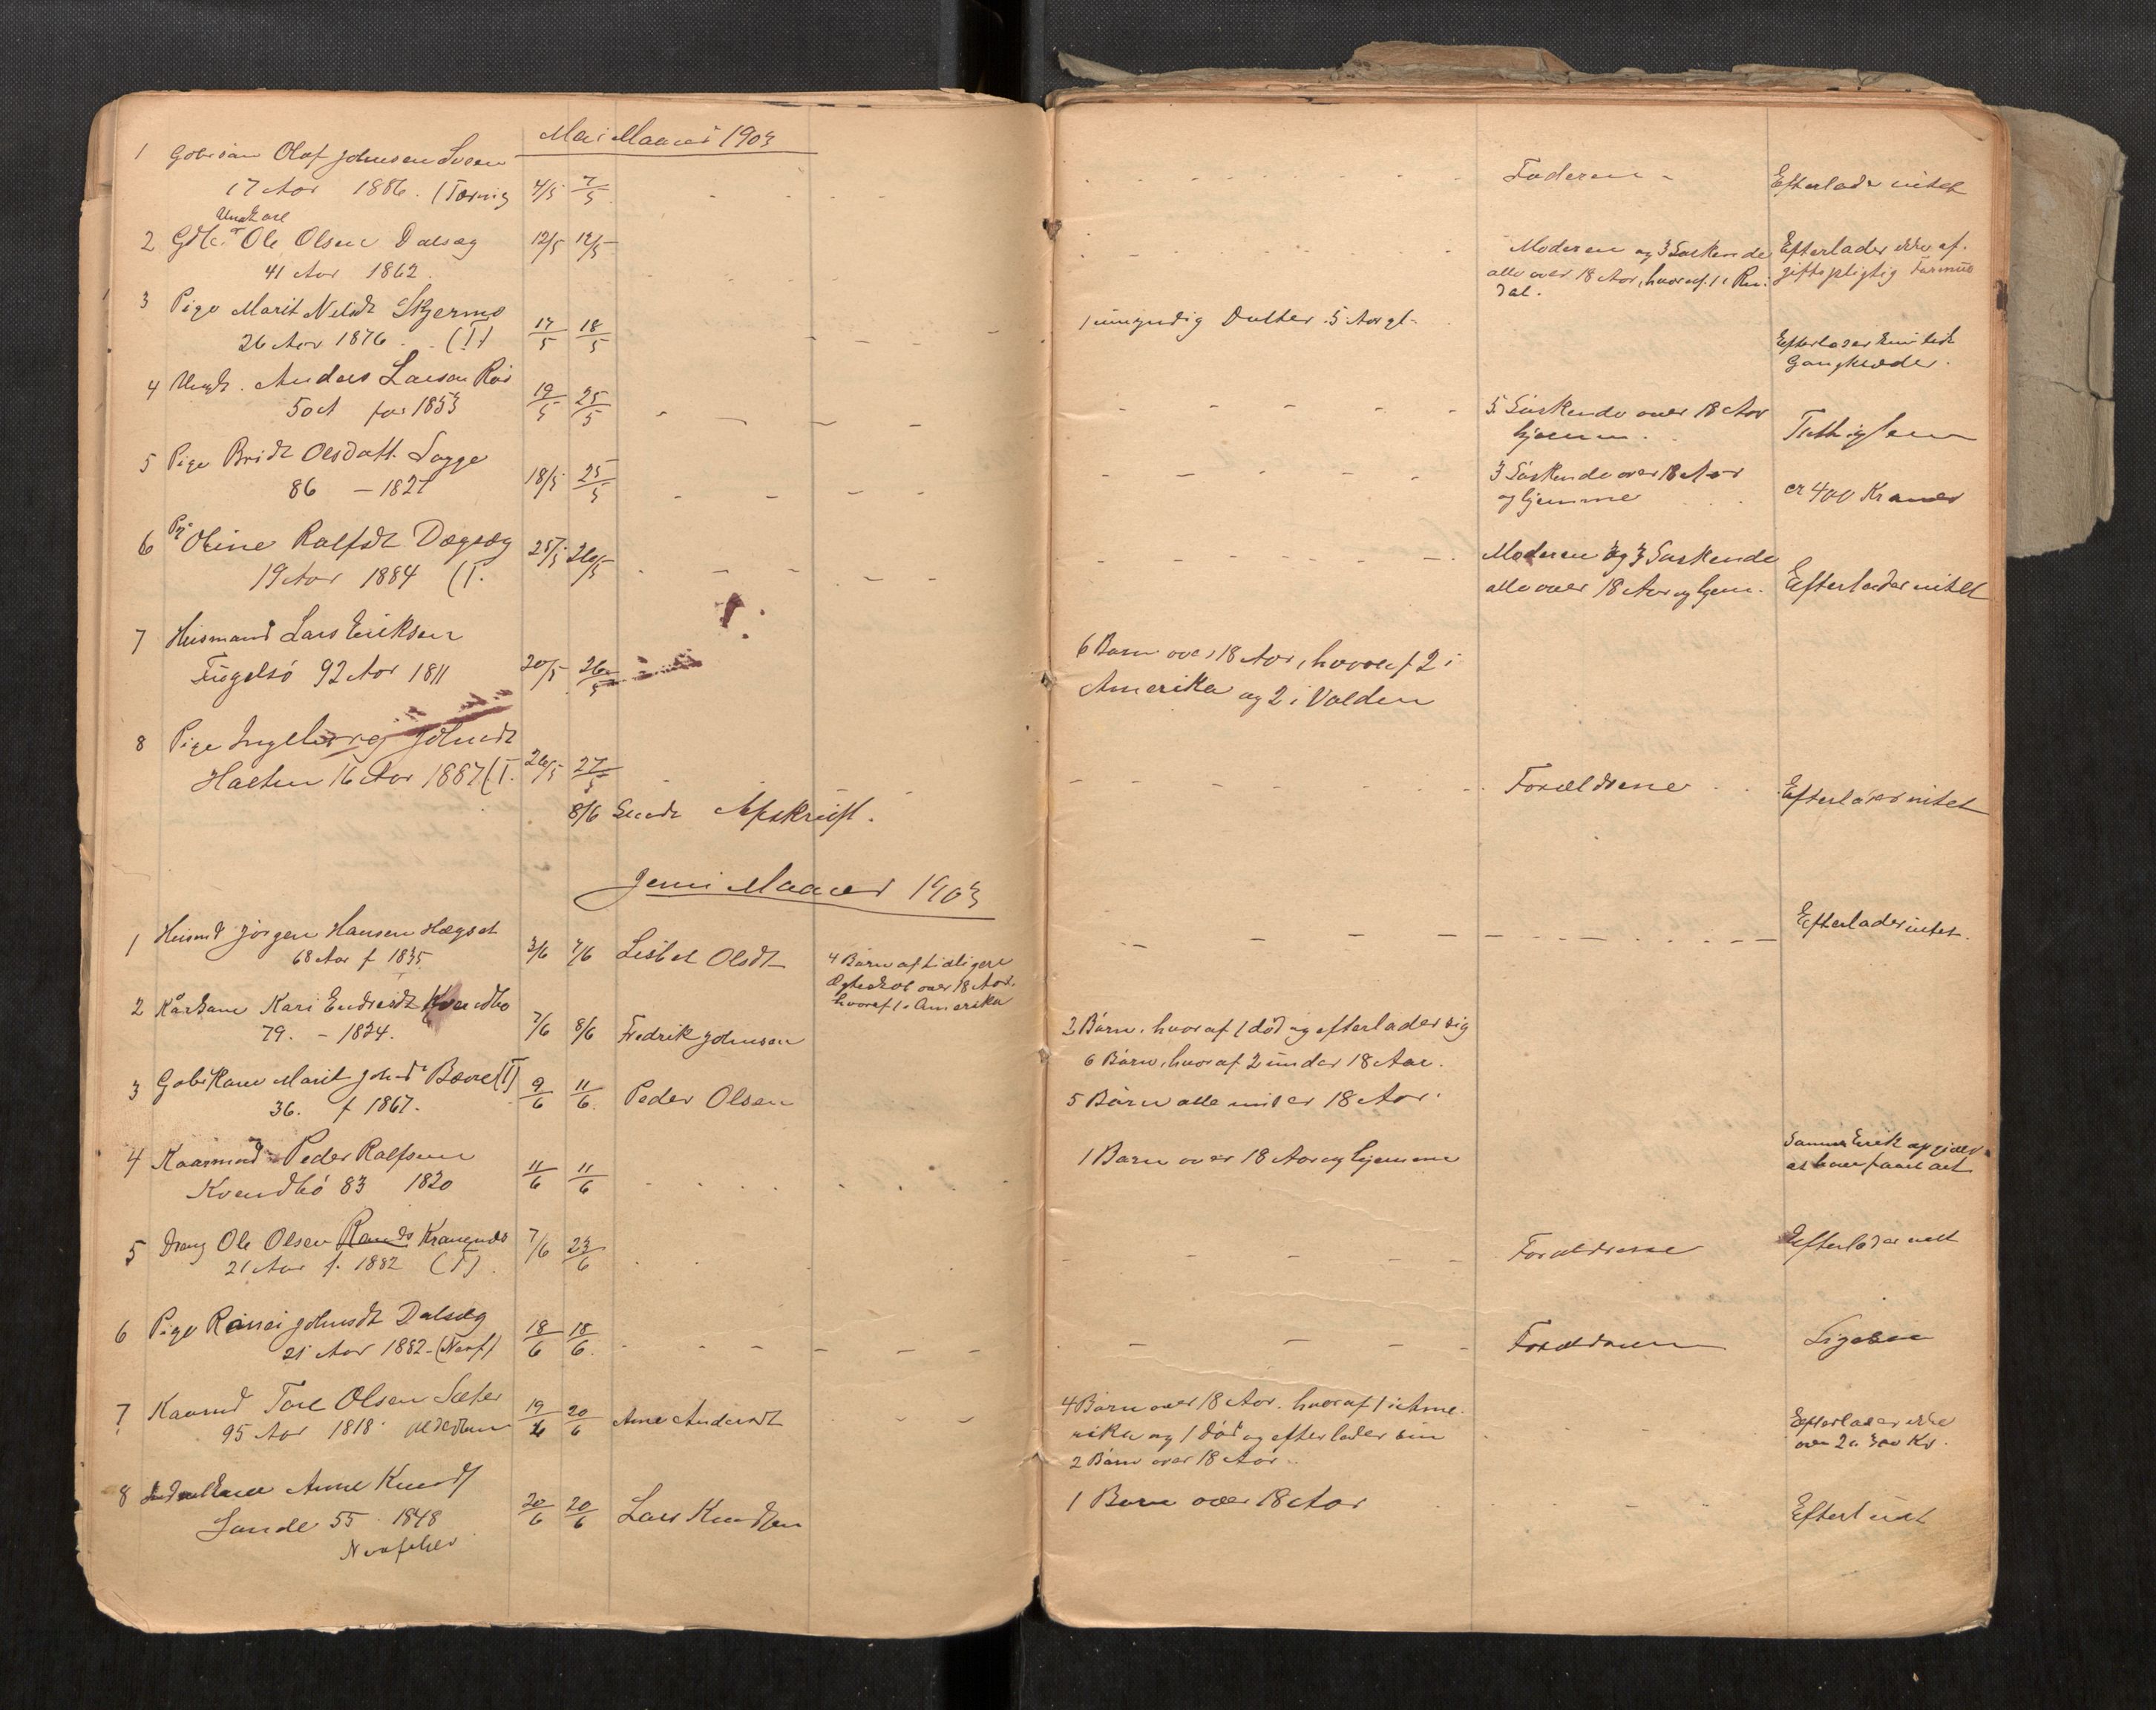 Mai Maaned 1903
1 Gbrsøn Olaf Johnsen Sveen
17 Aar 1886. (Tæring 4/5 7/5 - - - - Faderen - Efterlader intet
Ungkarl
2 Gdbr. Ole Olsen Dalsæg 12/5 14/5 - - - - Moderen og 3 Søskende Efterlader ikke af-
41 Aar 1862. alle over 18 Aar, hvoraf 1 i Rin- giftspligtig Formue
dal.
3 Pige Marit Nilsdt Skjermo
26 Aar 1876 . (T) 17/5 18/5 - - - 1 umyndig Datter 5 Aar gl.
Efterlader kun lidt
Gangklæder.
4 Ungk. Anders Larsen Røs
50 Aar f 1853 19/5 25/5 - - - - 5 Søskende over 18 Aar
hjemme. Ligesaa
5 Pige Bridt Olsdatt. Sogge
86 - 1827 18/5 25/5 - - - - 3 Søskende over 18 Aar
og hjemme ca 400 Kroner
6 Pi. Oline Ralfsdt Dægsæg 25/5 26/5 - - - - Moderen og 3 Søskende
19 Aar 1884 (T. alle over 18 Aar og hjem. Efterlader intet
7 Husmand Lars Eriksen
Fugelsø 92 Aar 1811 20/5 26/5 6 Barn over 18 Aar, hvoraf 2 i
Amerika og 2 i Volden
8 Pige Ingeborg Johnsdt
Halten 16 Aar 1887 (T. 26/5 27/5 - - - - Forældrene Efterlader intet
8/6 Sendt Afskrift.
Juni Maaned 1903
1 Husmd Jørgen Hansen Hægset
68 Aar f 1835. 3/6 4/6 Lisbet Olsdt 4 Børn af tidligere
Ægteskab over 18 Aar.
hvoraf 1 i Amerika - - - - Efterlader intet.
2 Kårkane Kari Endresdt Kvendbø
79. - 1824. 7/6 8/6 Fredrik Johnsen 2 Børn, hvoraf 1 død og efterlader sig
6 Børn, hvoraf 2 under 18 Aar.
3 Gbrkane Marit Johnsdt Bævre (T)
36. f 1867. 9/6 11/6. Peder Olsen 5 Børn alle under 18 Aar.
4 Kaarmand Peder Ralfsen
Kvendbø 83 1820 11/6 11/6 - - - - 1 Barn over 18 Aar og hjemme
Sønnen Erik opgiver
at have faaet alt
5 Dreng Ole Olsen Rands Krangnes 7/6 23/6
21 Aar f. 1882 (T) - - - - Forældrene Efterlader intet
6 Pige Rannei Johnsdt Dalsæg
21 Aar 1882 - (Nerf) 18/6 18/6. - - - - Forældrene Ligesaa
7 Kaarmd Tore Olsen Sæter
95 Aar 1818 Alderdom 19/6 20/6 Ane Andersdt - - - 4 Børn over 18 Aar. hvoraf 1 i Ame-
rika og 1 død og efterlader sin
2 Børn over 18 Aar. Efterlader ikke
over 2 a 300 Kr.
8 Anne Knudt
Sande 55 1848 20/6 20/6 Lars Knudsen 1 Barn over 18 Aar Efterl intet
Nerfeber